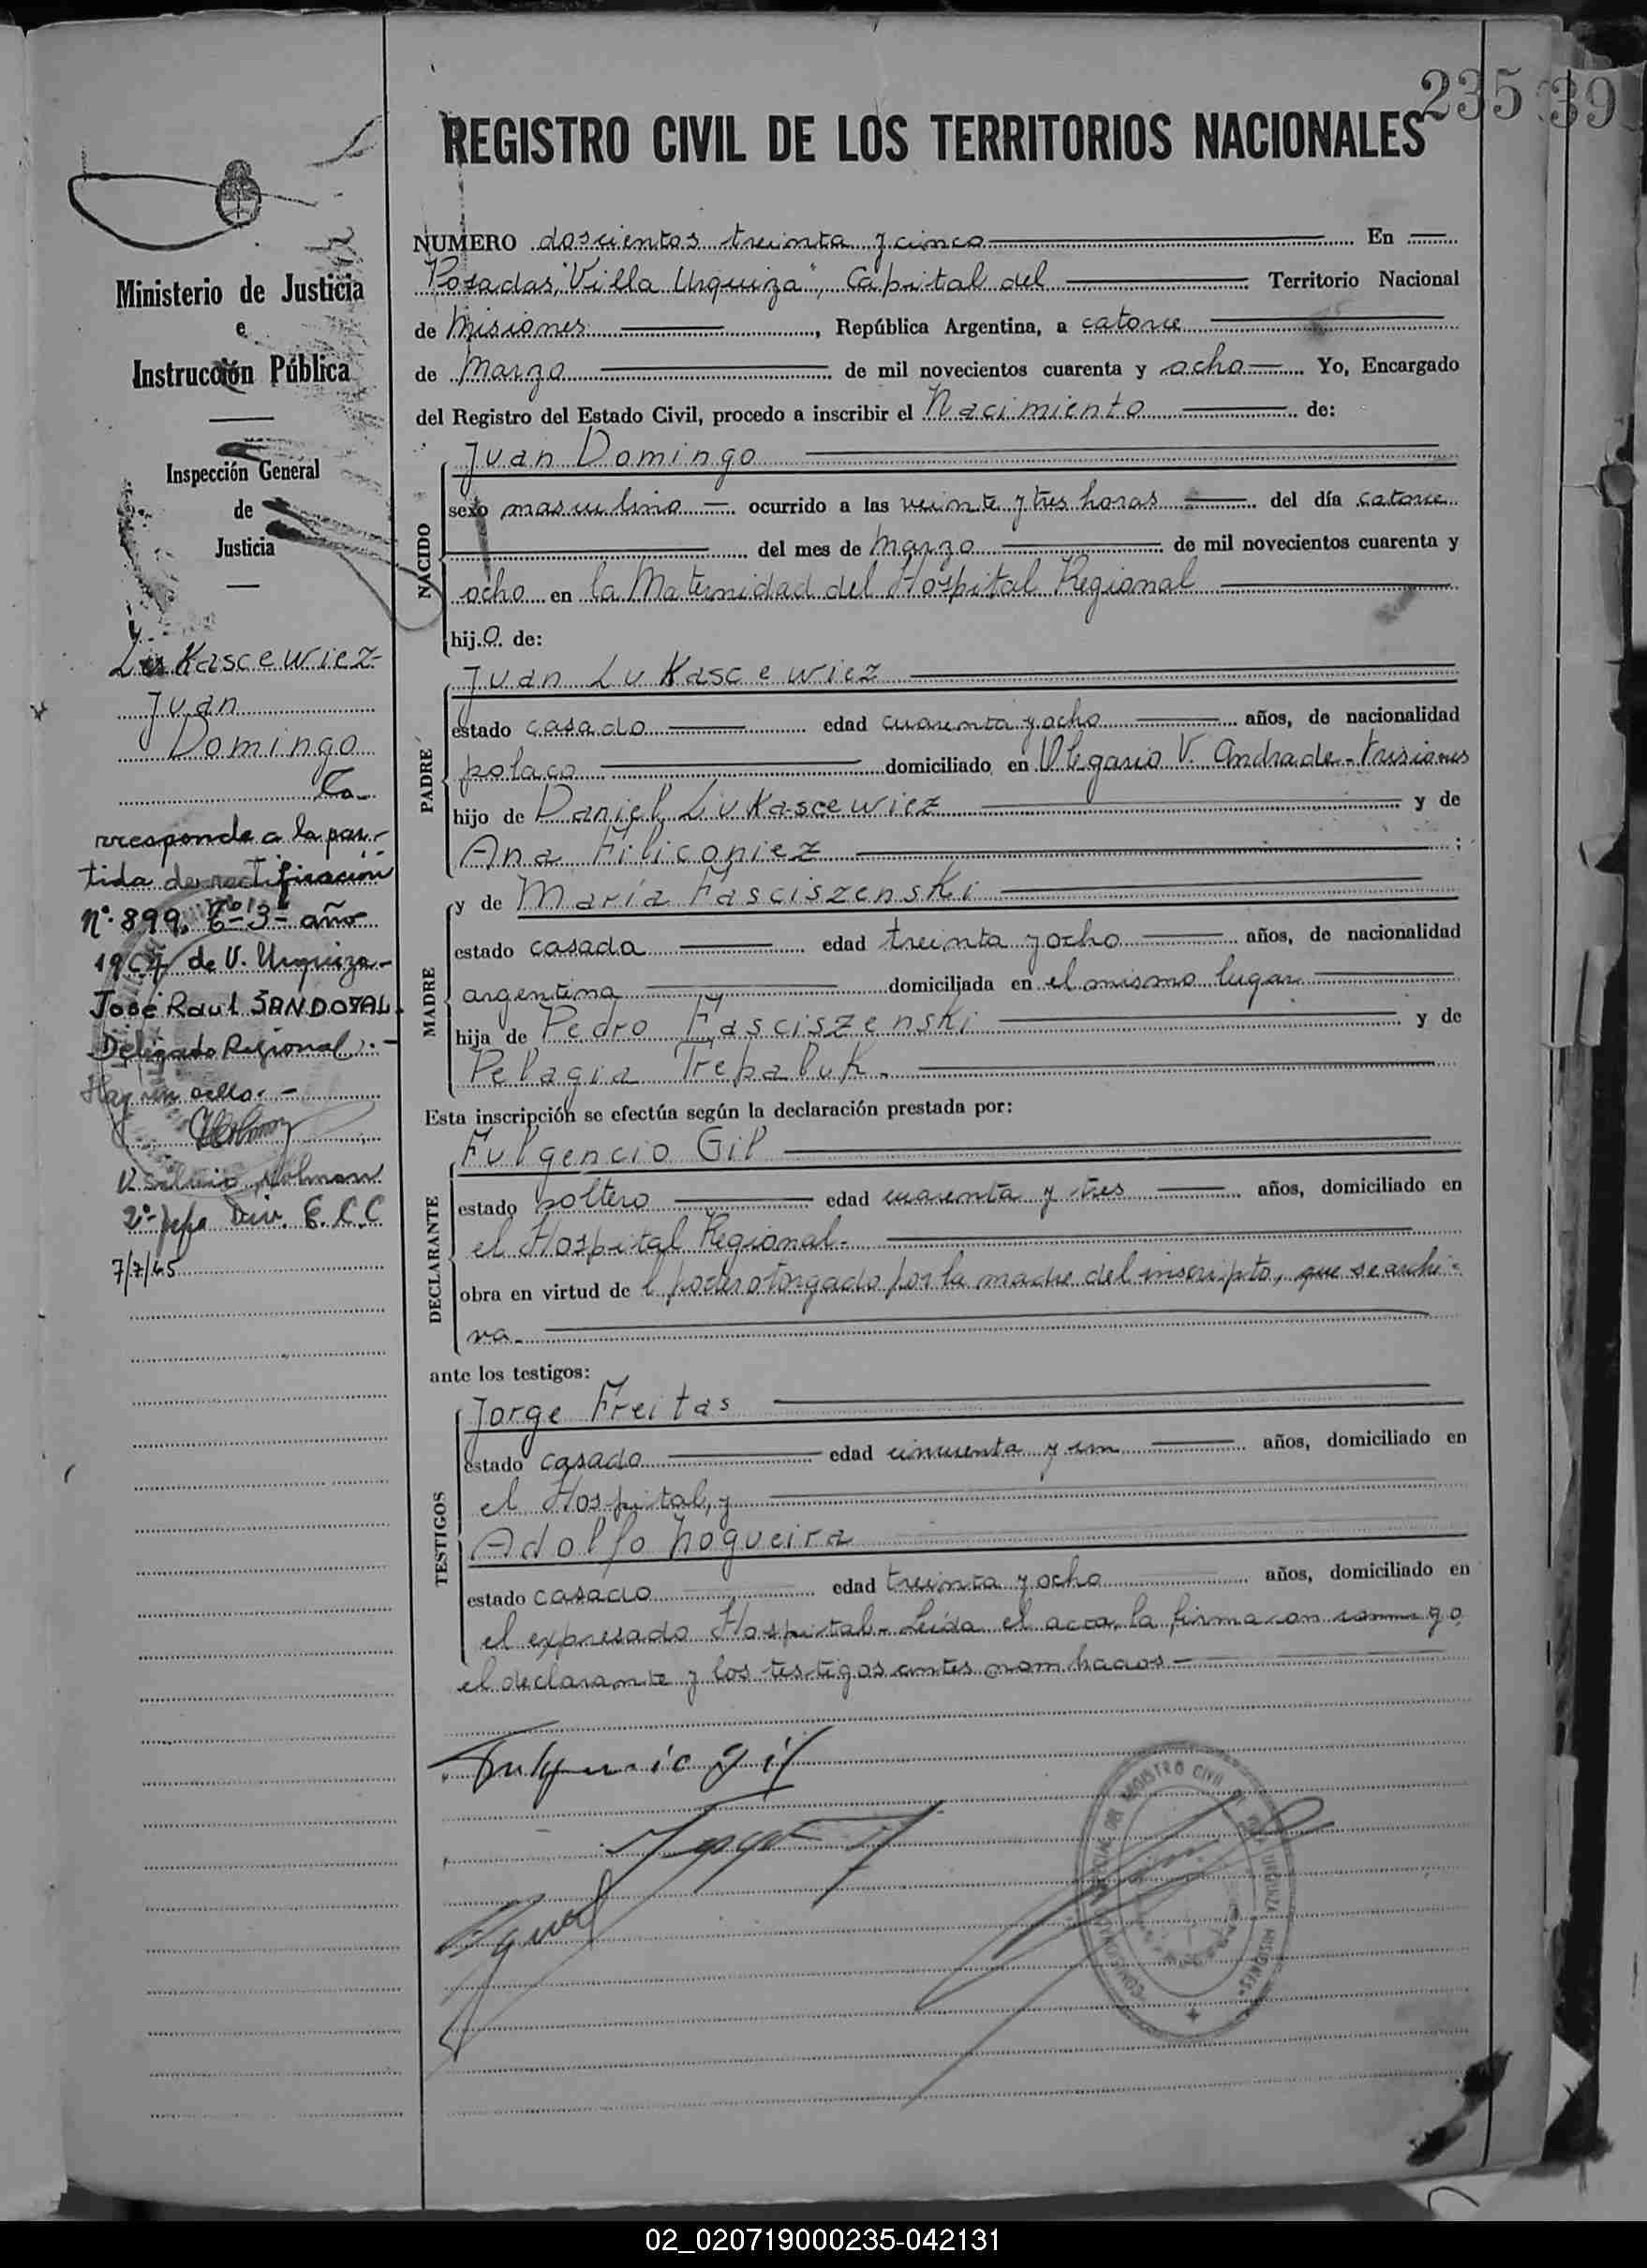 235 39
REGISTRO CIVIL DE LOS TERRITORIOS NACIONALES
Ministerio de Justicia
e
Instrucción Pública
Inspección General
de
Justicia
Lukascewiez
Juan
Domingo
Co-
rresponde a la par-
tida de rectificación
Nº 899, Tº 3º año
de V. Urquiza-
José Raul SANDOVAL.
Delegado Regional.-
Hay un sello.-
2º Jefe Div. E.C.C
NUMERO doscientos treinta y cinco En
Posadas, "Villa Urquiza", Capital del Territorio Nacional
de Misiones, República Argentina, a catorce
de Marzo de mil novecientos cuarenta y ocho Yo, Encargado
del Registro del Estado Civil, procedo a inscribir el Nacimiento de:
NACIDO
Juan Domingo
sexo masculino ocurrido a las veinte y tres horas del día catorce
del mes de Marzo de mil novecientos cuarenta y
ocho en la Maternidad del Hospital Regional
hijo de:
PADRE
Juan Lukascewiez
estado casado edad cuarenta y ocho años, de nacionalidad
polaco domiciliado en Olegario V. Andrade - Misiones
hijo de Daniel Lukascewiez y de
Ana Filicopiez;
MADRE
y de María Fasciszenski
estado casada edad treinta y ocho años, de nacionalidad
argentina domiciliada en el mismo lugar
hija de Pedro Fasciszenski y de
Pelagia Trepaluk.
Esta inscripción se efectúa según la declaración prestada por:
DECLARANTE
Fulgencio Gil
estado soltero edad cuarenta y tres años, domiciliado en
el Hospital Regional.
obra en virtud del poder otorgado por la madre del inscripto, que se archi-
va.
ante los testigos:
TESTIGOS
Jorge Freitas
estado casado edad cincuenta y un años, domiciliado en
el Hospital, y
Adolfo Nogueira
estado casado edad treinta y ocho años, domiciliado en
el expresado Hospital.- Leída el acta, la firma con conmigo
el declarante y los testigos antes nombrados-
Fulgencio Gil
REGISTRO CIVIL URQUIZA MISIONES
02_020719000235-042131